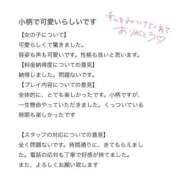 小柄で可愛いらしいです
私をみつけてくれて
ありがとう♡
【女の子について】
可愛らしくて驚きました。
容姿も声も可愛いです。性格も良いと思います。
【料金納得度についての意見】
納得しました。問題ないです。
【プレイ内容についての意見】
全体的に、とても楽しかったです。小柄ですが、
一生懸命やっていただきました。くっついている
時間も楽しかったです。
【スタッフの対応についての意見】
全く問題ないです。時間通りに、きてもらえまし
た。電話の応対も丁寧で好感が持てました。
また、よろしくお願い致します